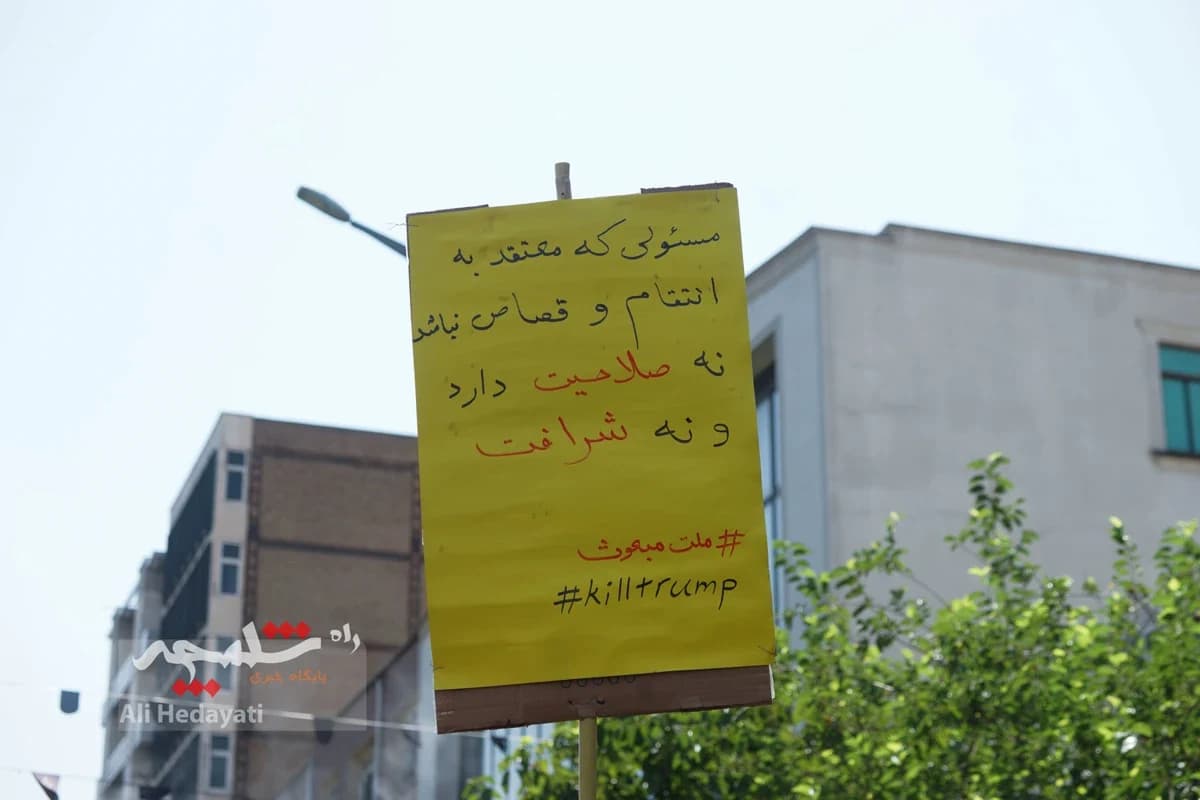 مسئولی که معتقد به
انتقام و قصاص نباشد
نه صلاحیت دارد
و نه شرافت
#ملت مبعوث
#killtrump
راه شلمچه
پایگاه خبری
Ali Hedayati